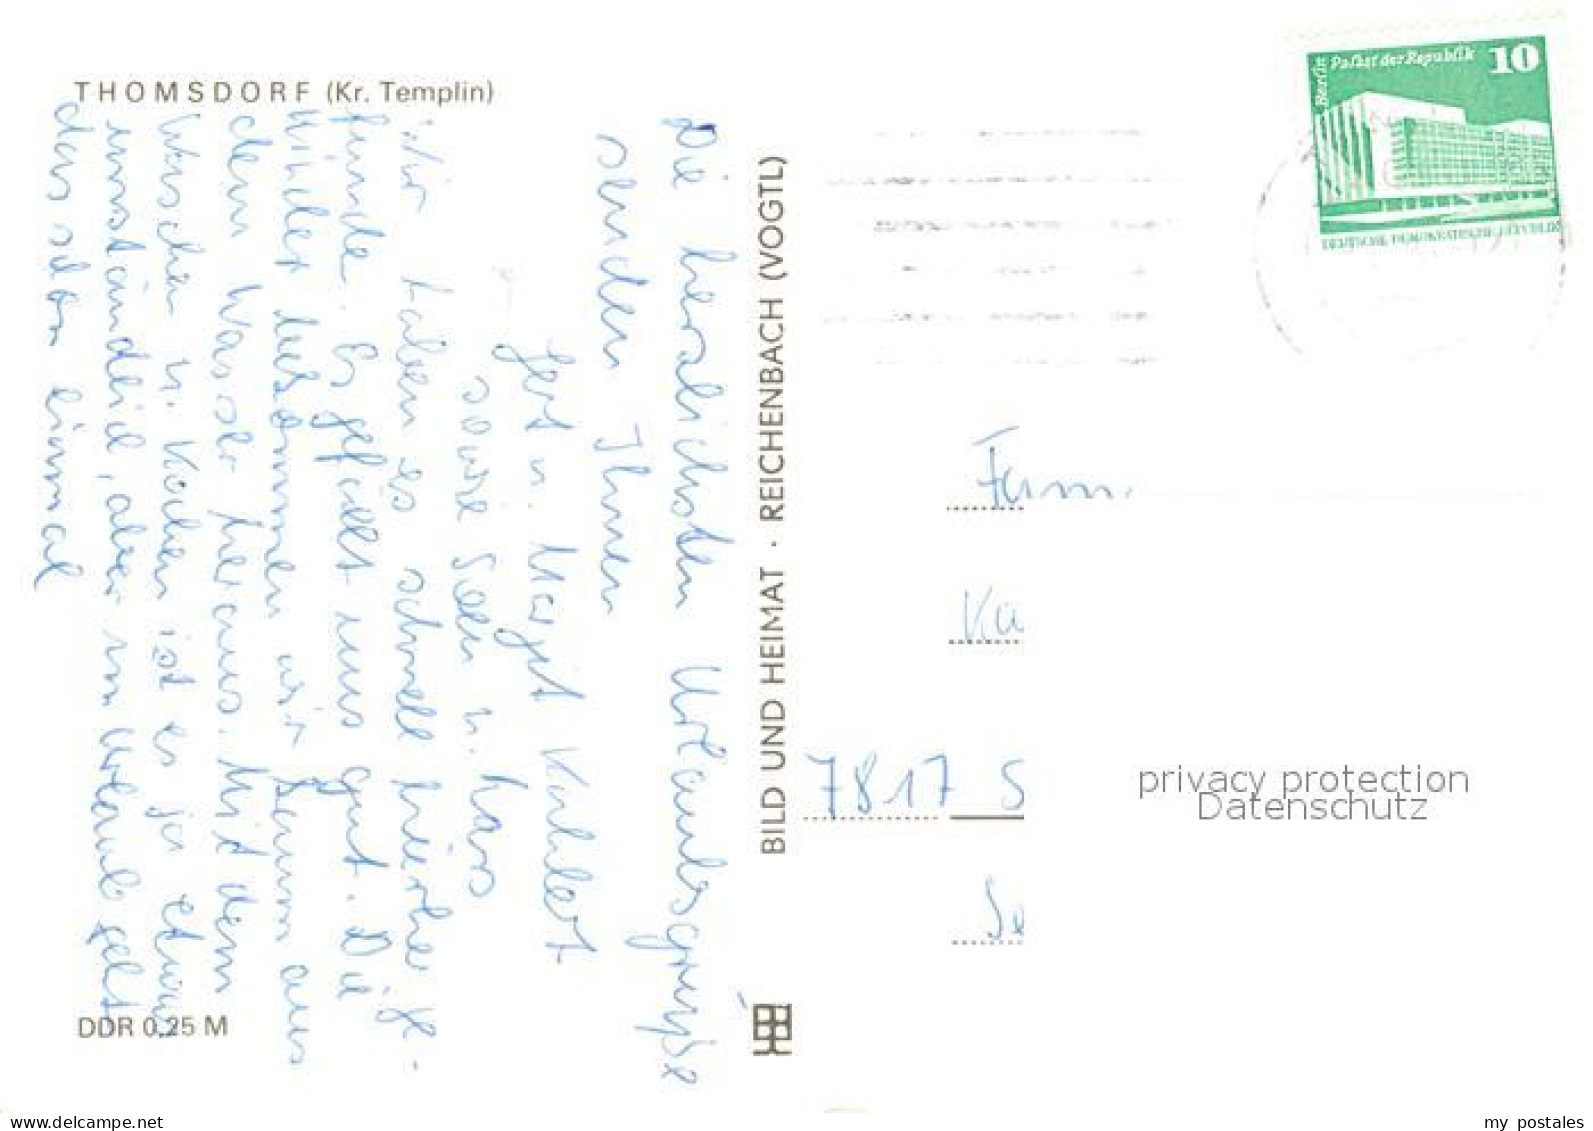 THOMSDORF (Kr. Templin)
Die herzlichsten Urlaubsgrüße
senden Ihnen
Gert u. Margit Kahlert
sowie Sven u. Lars
Wir haben es schnell hierher ge-
funden. Es gefällt uns gut. Die
Kinder bekommen wir kaum aus
dem Wasser heraus. Mit dem
Waschen u. Kochen ist es ja etwas
umständlich, aber im Urlaub geht
das schon einmal
DDR 0,25 M
BILD UND HEIMAT · REICHENBACH (VOGTL)
Berlin Palast der Republik 10
DEUTSCHE DEMOKRATISCHE REPUBLIK
Fam.
7817 S
privacy protection
Datenschutz
delcampe.net
my_postales